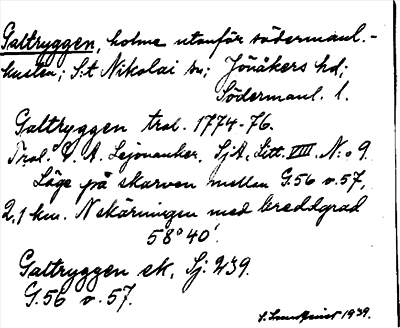 Galtryggen, holme utanför södermanl.-
kusten; S:t Nikolai sn; Jönåkers hd;
Södermanl. l.
Galtryggen trol. 1774-76.
Trol. C. A. Lejonanker, SjA, Litt. VIII. N:o 9.
Läge på skarven mellan G.56 v. 57,
2,1 km. N skärningen med breddgrad
58°40'.
Galtryggen ek. Sj. 239.
G.56 v. 57.
1939.